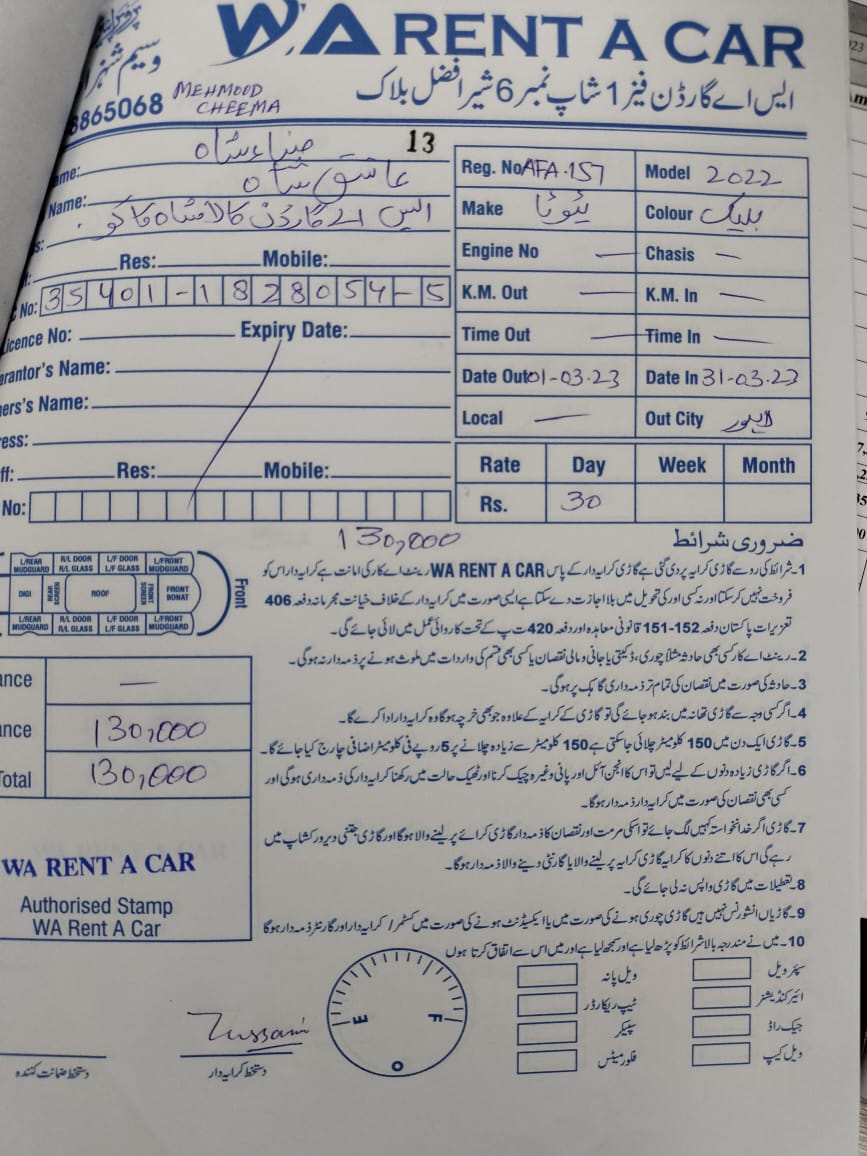 WA RENT A CAR
وسیم شہزا
ایس اے گارڈن فیز 1 شاپ نمبر 6 شیر افضل بلاک
8865068
MEHMOOD
CHEEMA
13
ame:
عاشق شاہ
Name:
ایس اے گارڈن کالا شاہ کاکو
s:
Res: Mobile:
No: 35401-1828054-5
icence No: Expiry Date:
erantor's Name:
hers's Name:
ress:
ff: Res: Mobile:
No:
Reg. No AFA-157 Model 2022
Make ٹیوٹا Colour بلیک
Engine No — Chasis —
K.M. Out — K.M. In —
Time Out — Time In —
Date Out 01-03-23 Date In 31-03-23
Local — Out City لاہور
Rate Day Week Month
Rs. 30
130,000
L/REAR MUDGUARD R/L DOOR R/L GLASS L/F DOOR L/F GLASS L/FRONT MUDGUARD
DIGI REAR SCREEN ROOF FRONT SCREEN FRONT BONAT
L/REAR MUDGUARD R/L DOOR R/L GLASS L/F DOOR L/F GLASS L/FRONT MUDGUARD
Front
ance —
ance 130,000
Total 130,000
WA RENT A CAR
Authorised Stamp
WA Rent A Car
ضروری شرائط
1۔شرائط کی رو سے گاڑی کرایہ پر دی گئی ہے گاڑی کرایہ دار کے پاس WA RENT A CAR رینٹ اے کار کی امانت ہے کرایہ دار اس کو
فروخت نہیں کر سکتا اور نہ کسی اور کی تحویل میں بلا اجازت دے سکتا ہے ایسی صورت میں کرایہ دار کے خلاف خیانت مجرمانہ دفعہ 406
تعزیرات پاکستان دفعہ 152-151 قانونی معاہدہ اور دفعہ 420 ت پ کے تحت کاروائی عمل میں لائی جائے گی۔
2۔رینٹ اے کار کسی بھی حادثہ مثلاً چوری، ڈکیتی یا جانی و مالی نقصان یا کسی بھی قسم کی واردات میں ملوث ہونے پر ذمہ دار نہ ہوگی۔
3۔حادثہ کی صورت میں نقصان کی تمام تر ذمہ داری گاہک پر ہوگی۔
4۔اگر کسی وجہ سے گاڑی تھانہ میں بند ہو جائے گی تو گاڑی کے کرایہ کے علاوہ جو بھی خرچہ ہوگا وہ کرایہ دار ادا کرے گا۔
5۔گاڑی ایک دن میں 150 کلومیٹر چلائی جا سکتی ہے 150 کلومیٹر سے زیادہ چلانے پر 5 روپے فی کلومیٹر اضافی چارج کیا جائے گا۔
6۔اگر گاڑی زیادہ دنوں کے لیے لیں تو اس کا انجن آئل اور پانی وغیرہ چیک کرنا اور ٹھیک حالت میں رکھنا کرایہ دار کی ذمہ داری ہوگی اور
کسی بھی نقصان کی صورت میں کرایہ دار ذمہ دار ہوگا۔
7۔گاڑی اگر خدانخواستہ کہیں لگ جائے تو اسکی مرمت اور نقصان کا ذمہ دار گاڑی کرائے پر لینے والا ہوگا اور گاڑی جتنی دیر ورکشاپ میں
رہے گی اس کا اتنے دنوں کا کرایہ گاڑی کرایہ پر لینے والا یا گارنٹی دینے والا ذمہ دار ہوگا۔
8۔تعطیلات میں گاڑی واپس نہ لی جائے گی۔
9۔گاڑیاں انشورنس نہیں ہیں گاڑی چوری ہونے کی صورت میں یا ایکسیڈنٹ ہونے کی صورت میں کسٹمر / کرایہ دار اور گارنٹر ذمہ دار ہوگا
10۔میں نے مندرجہ بالا شرائط کو پڑھ لیا ہے اور سمجھ لیا ہے اور میں اس سے اتفاق کرتا ہوں
سپئر ویل
ویل پانہ
ائیر کنڈیشنر
ٹیپ ریکارڈر
جیک راڈ
سپیکر
ویل کیپ
فلور میٹس
E F
O
دستخط کرایہ دار
دستخط ضمانت کنندہ